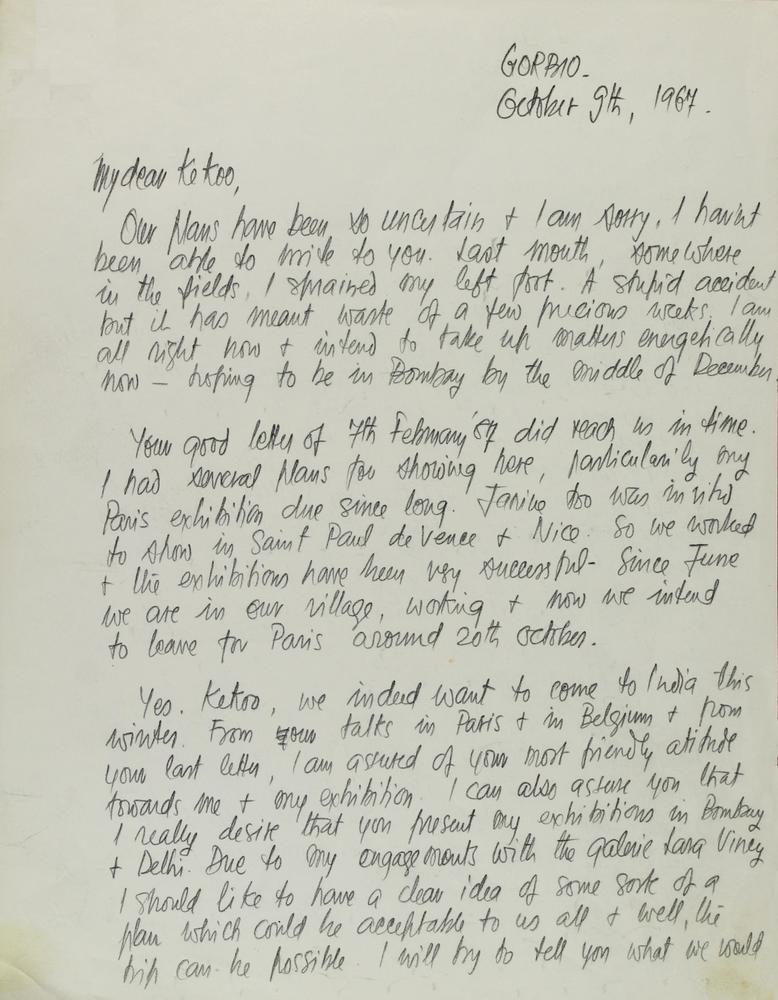 GORBIO.
October 9th, 1967.
My dear Kekoo,
Our plans have been so uncertain + I am sorry, I havn't
been able to write to you. Last month, somewhere
in the fields, I sprained my left foot. A stupid accident
but it has meant waste of a few precious weeks. I am
all right now + intend to take up matters energetically
now – hoping to be in Bombay by the middle of December.
Your good letter of 7th February '67 did reach us in time.
I had several plans for showing here, particularily my
Paris exhibition due since long. Janine too was invited
to show in Saint Paul de Vence + Nice. So we worked
+ the exhibitions have been very successful – Since June
we are in our village, working + now we intend
to leave for Paris around 20th October.
Yes. Kekoo, we indeed want to come to India this
winter. From our talks in Paris + in Belgium + from
your last letter, I am assured of your most friendly atitude
towards me + my exhibition. I can also assure you that
I really desire that you present my exhibitions in Bombay
+ Delhi. Due to my engagements with the galerie Lara Vincy
I should like to have a clear idea of some sort of a
plan which could be acceptable to us all + well, the
trip can be possible. I will try to tell you what we would